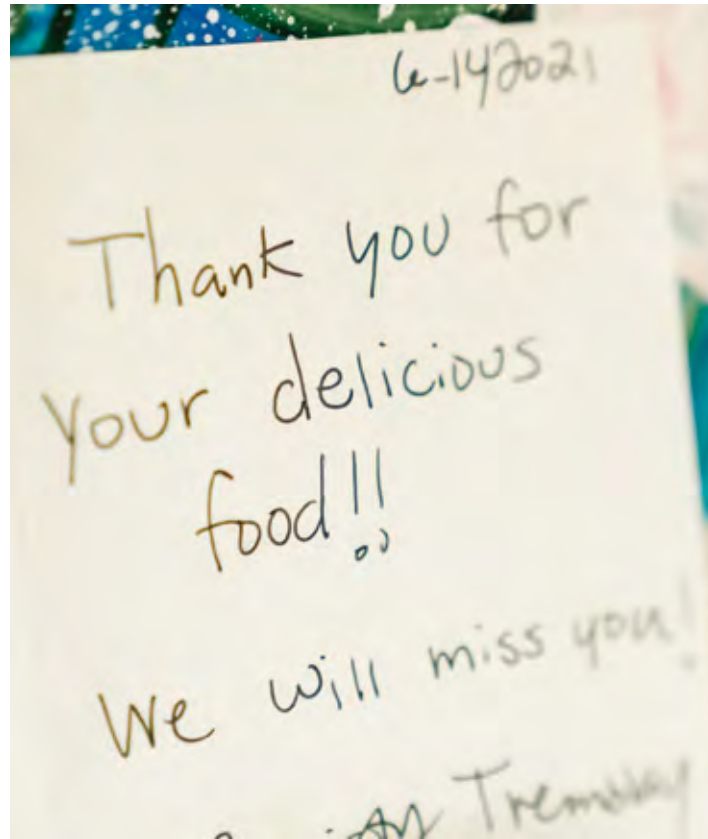 6-14 2021
Thank you for
your delicious
food!!
We will miss you!
Tremblay